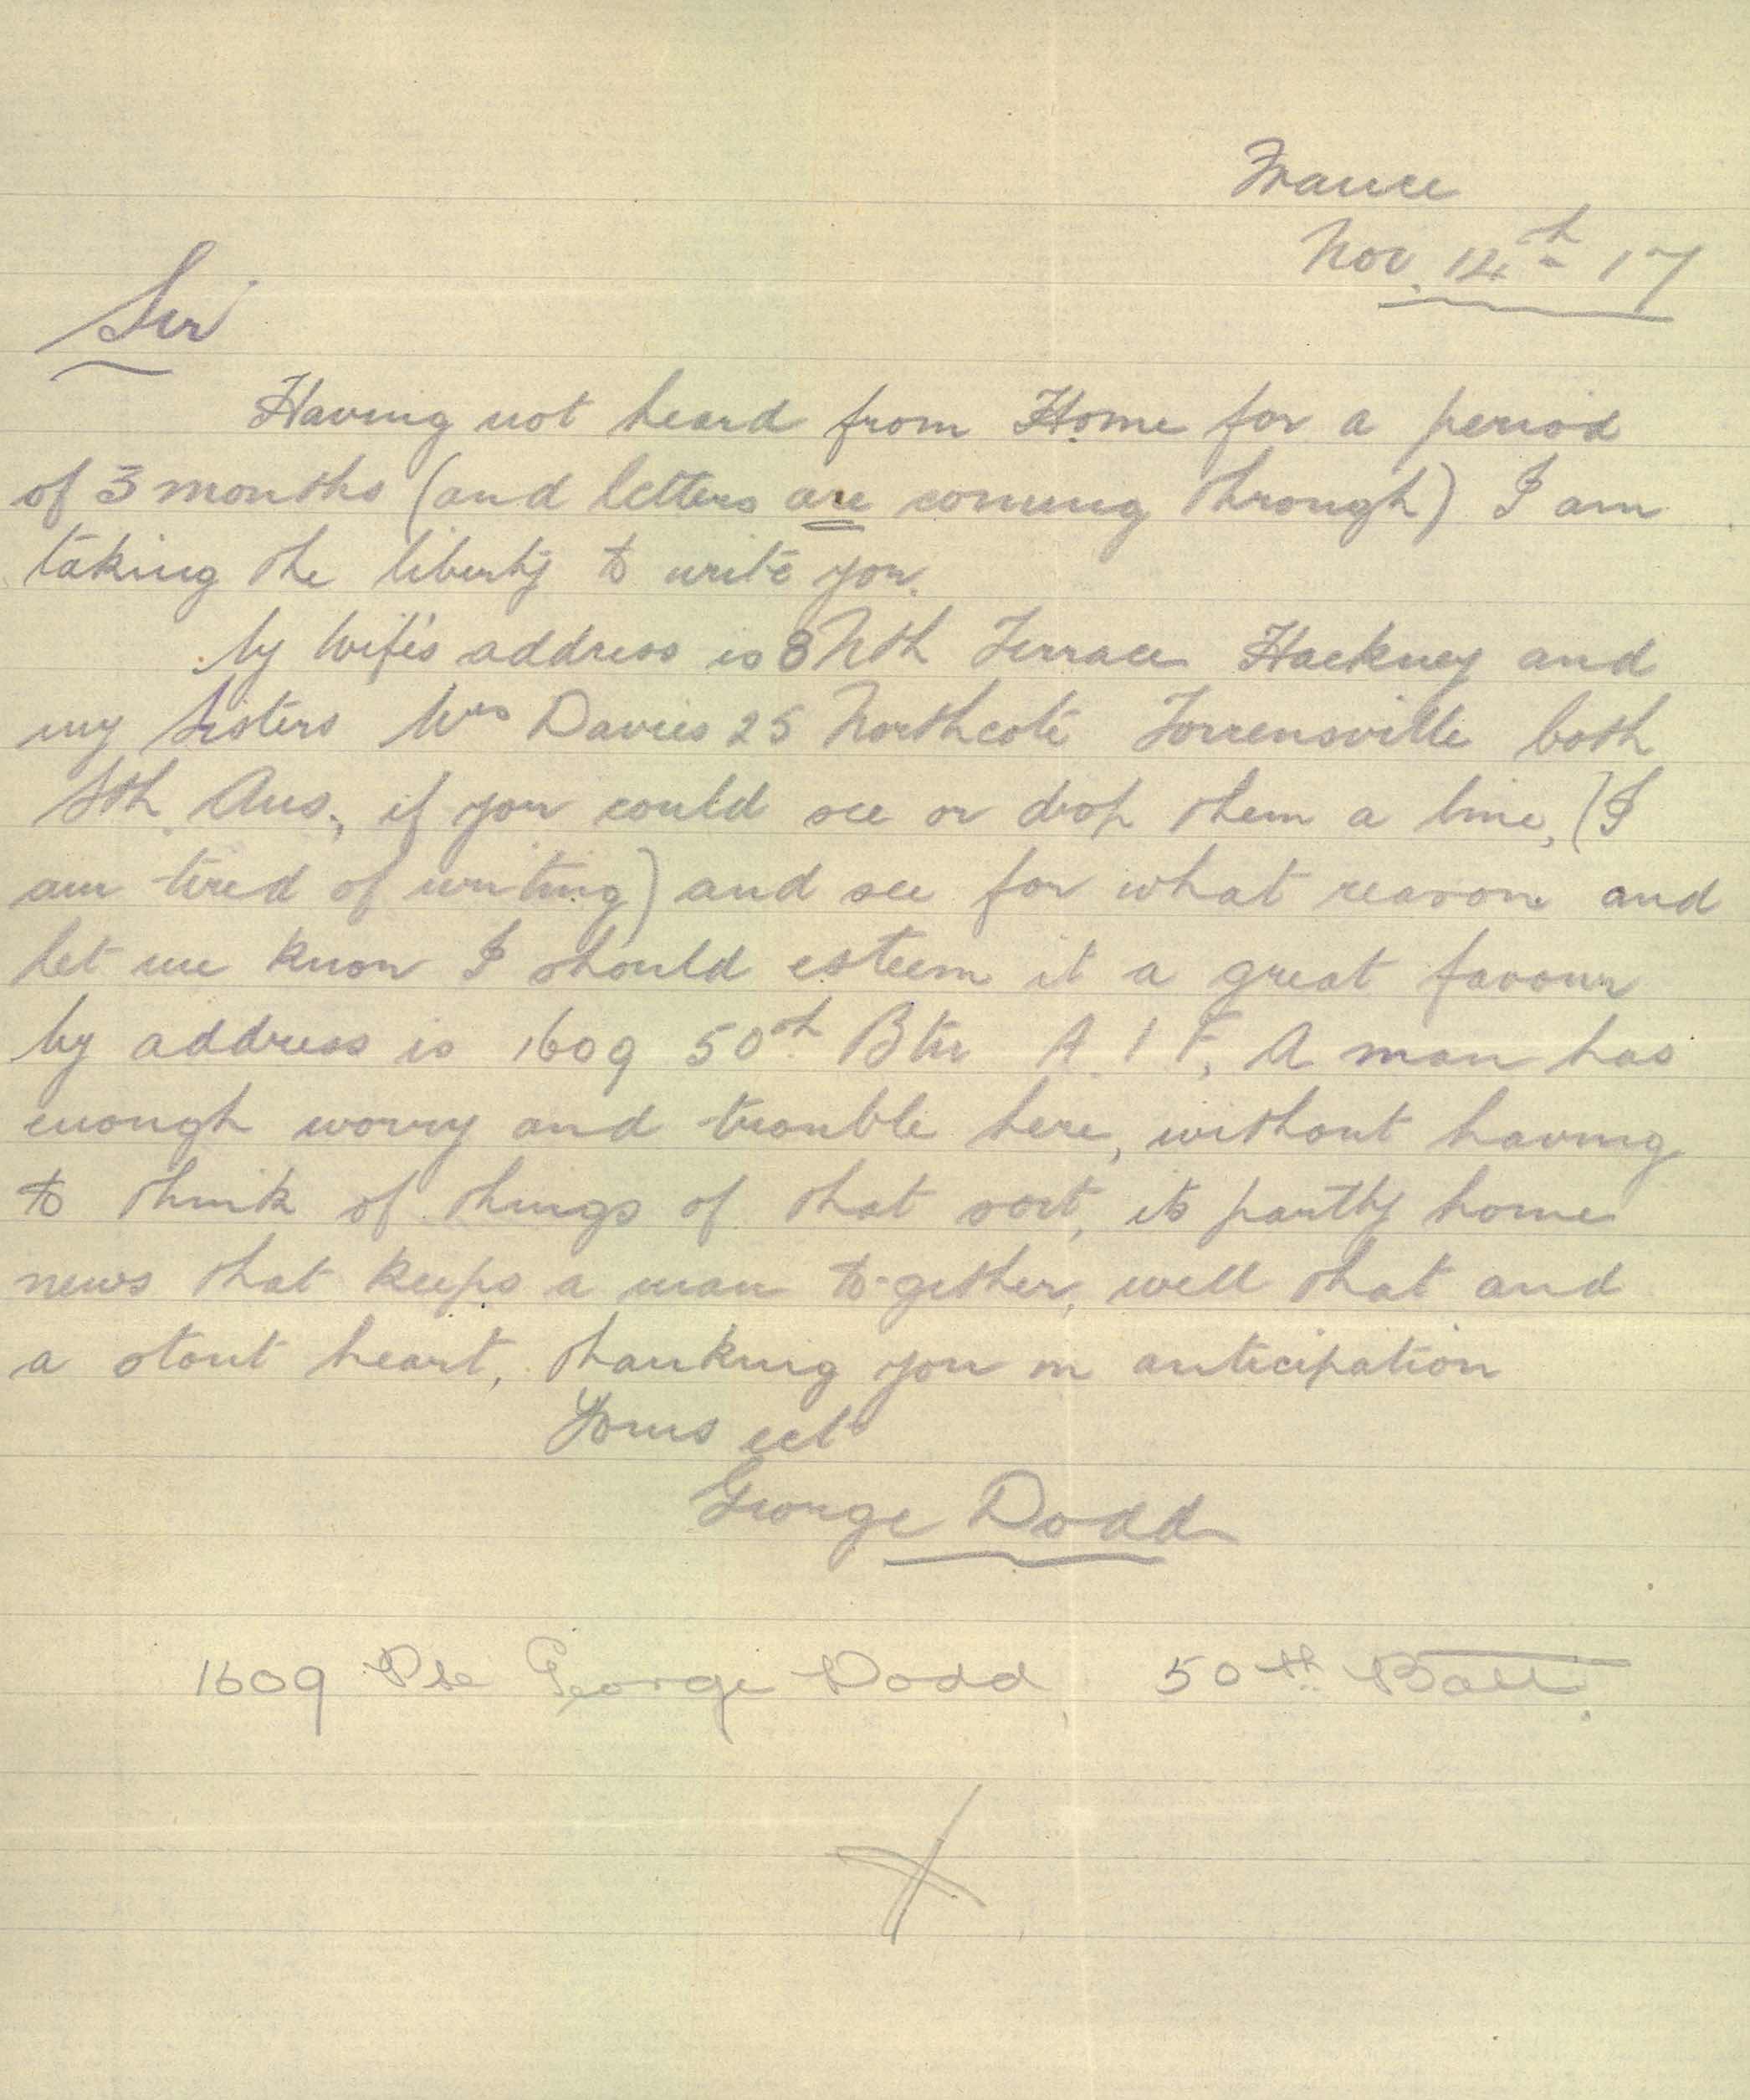 France
Nov. 14th 17
Sir
Having not heard from Home for a period
of 3 months (and letters are coming through) I am
taking the liberty to write you.
My Wife's address is 8 Nth Terrace Hackney and
my Sisters Mrs Davies 25 Northcote Torrensville both
Sth. Aus., if you could see or drop them a line, (I
am tired of writing) and see for what reason and
let me know I should esteem it a great favour
My address is 1609 50th Btn A.I.F, A man has
enough worry and trouble here, without having
to think of things of that sort, its partly home
news that keeps a man to-gether, well that and
a stout heart, thanking you in anticipation
Yours ect
George Dodd
1609 Pte George Dodd 50th Batt.